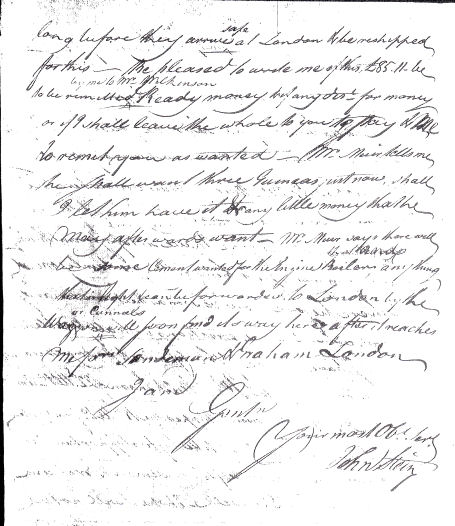 safe
long before they arrive at London to be reshipped
for this — Be pleased to write me if this £35.11 be
by me to Mr. Mchinson
to be remitted Ready money for any for money
or if I shall leave the whole to you to pay & I'll
to remit you as wanted — Mr. Muir tells me
he shall want three Guineas just now, shall
I let him have it or any little money that he
may afterwards want — Mr. Muir says there will
be some Cement wanted for the Engine Boilers any thing
that might can be forwarded to London by the
or Cannals
Waggons will soon find its way here after it reaches
Sandeman & Graham London
I am
Gentn
Your most Obt. Sert.
John Stein